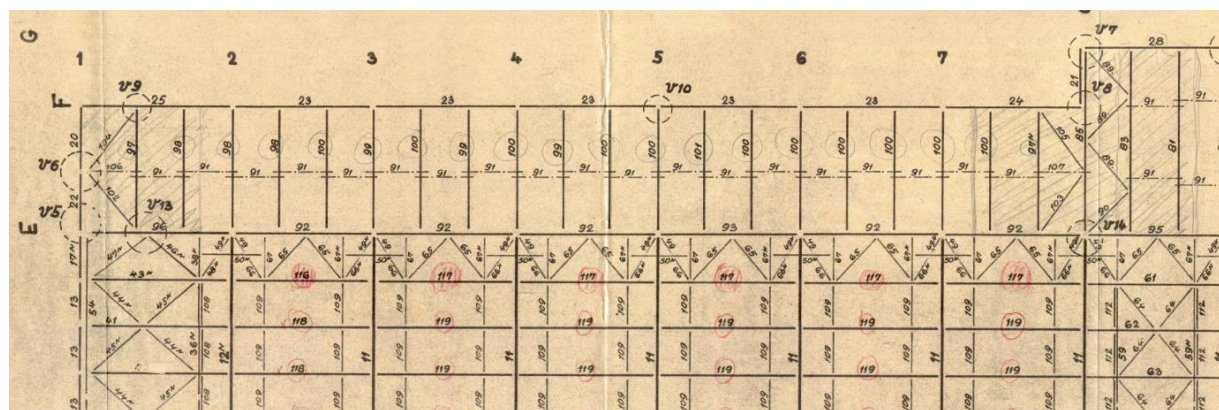 G
1 2 3 4 5 6 7 V7 28
F V9 25 23 23 23 V10 23 23 24 V8 21
20 104 97 98 98 98 100 99 100 99 100 99 100 100 101 100 100 100 100 100 97ᴺ 105 85 89 91 83 81 91
V6 106 91 91 91 91 91 91 91 91 91 91 91 91 91 91 91 91 91 91 91 107 89 89 91 91
22 102 103 90
V5 V13 V14
E 96 92 92 92 93 92 92 95
17ᴺ 47ᴺ 46ᴺ 38ᴺ 49ᴺ 49 67 65 65 67ᴺ 49ᴺ 49 67 65 65 67ᴺ 49ᴺ 49 67 65 65 67ᴺ 49ᴺ 49 67 65 65 67ᴺ 49ᴺ 49 67 65 65 67ᴺ 49ᴺ 49 67 65 65 67ᴺ 49ᴺ 49 67 65 65 67ᴺ 49ᴺ
43ᴺ 48ᴺ 50ᴺ 66 116 66ᴺ 50ᴺ 66 117 66ᴺ 50ᴺ 66 117 66ᴺ 50ᴺ 66 117 66ᴺ 50ᴺ 66 117 66ᴺ 50ᴺ 66 117 66ᴺ 50ᴺ 66 61 66ᴺ
13 54 44ᴺ 45ᴺ 108 109 109 109 109 109 109 109 109 109 109 109 109 112 64 64 112
41 118 119 119 119 119 119 62
13 45ᴺ 44ᴺ 36ᴺ 108 12ᴺ 109 109 11 109 109 11 109 109 11 109 109 11 109 109 11 109 109 11 112 59 64 64 59ᴺ 112
118 119 119 119 119 119 63
13 44ᴺ 45ᴺ 108 109 109 109 109 109 109 109 109 109 109 109 109 112 64 64 112